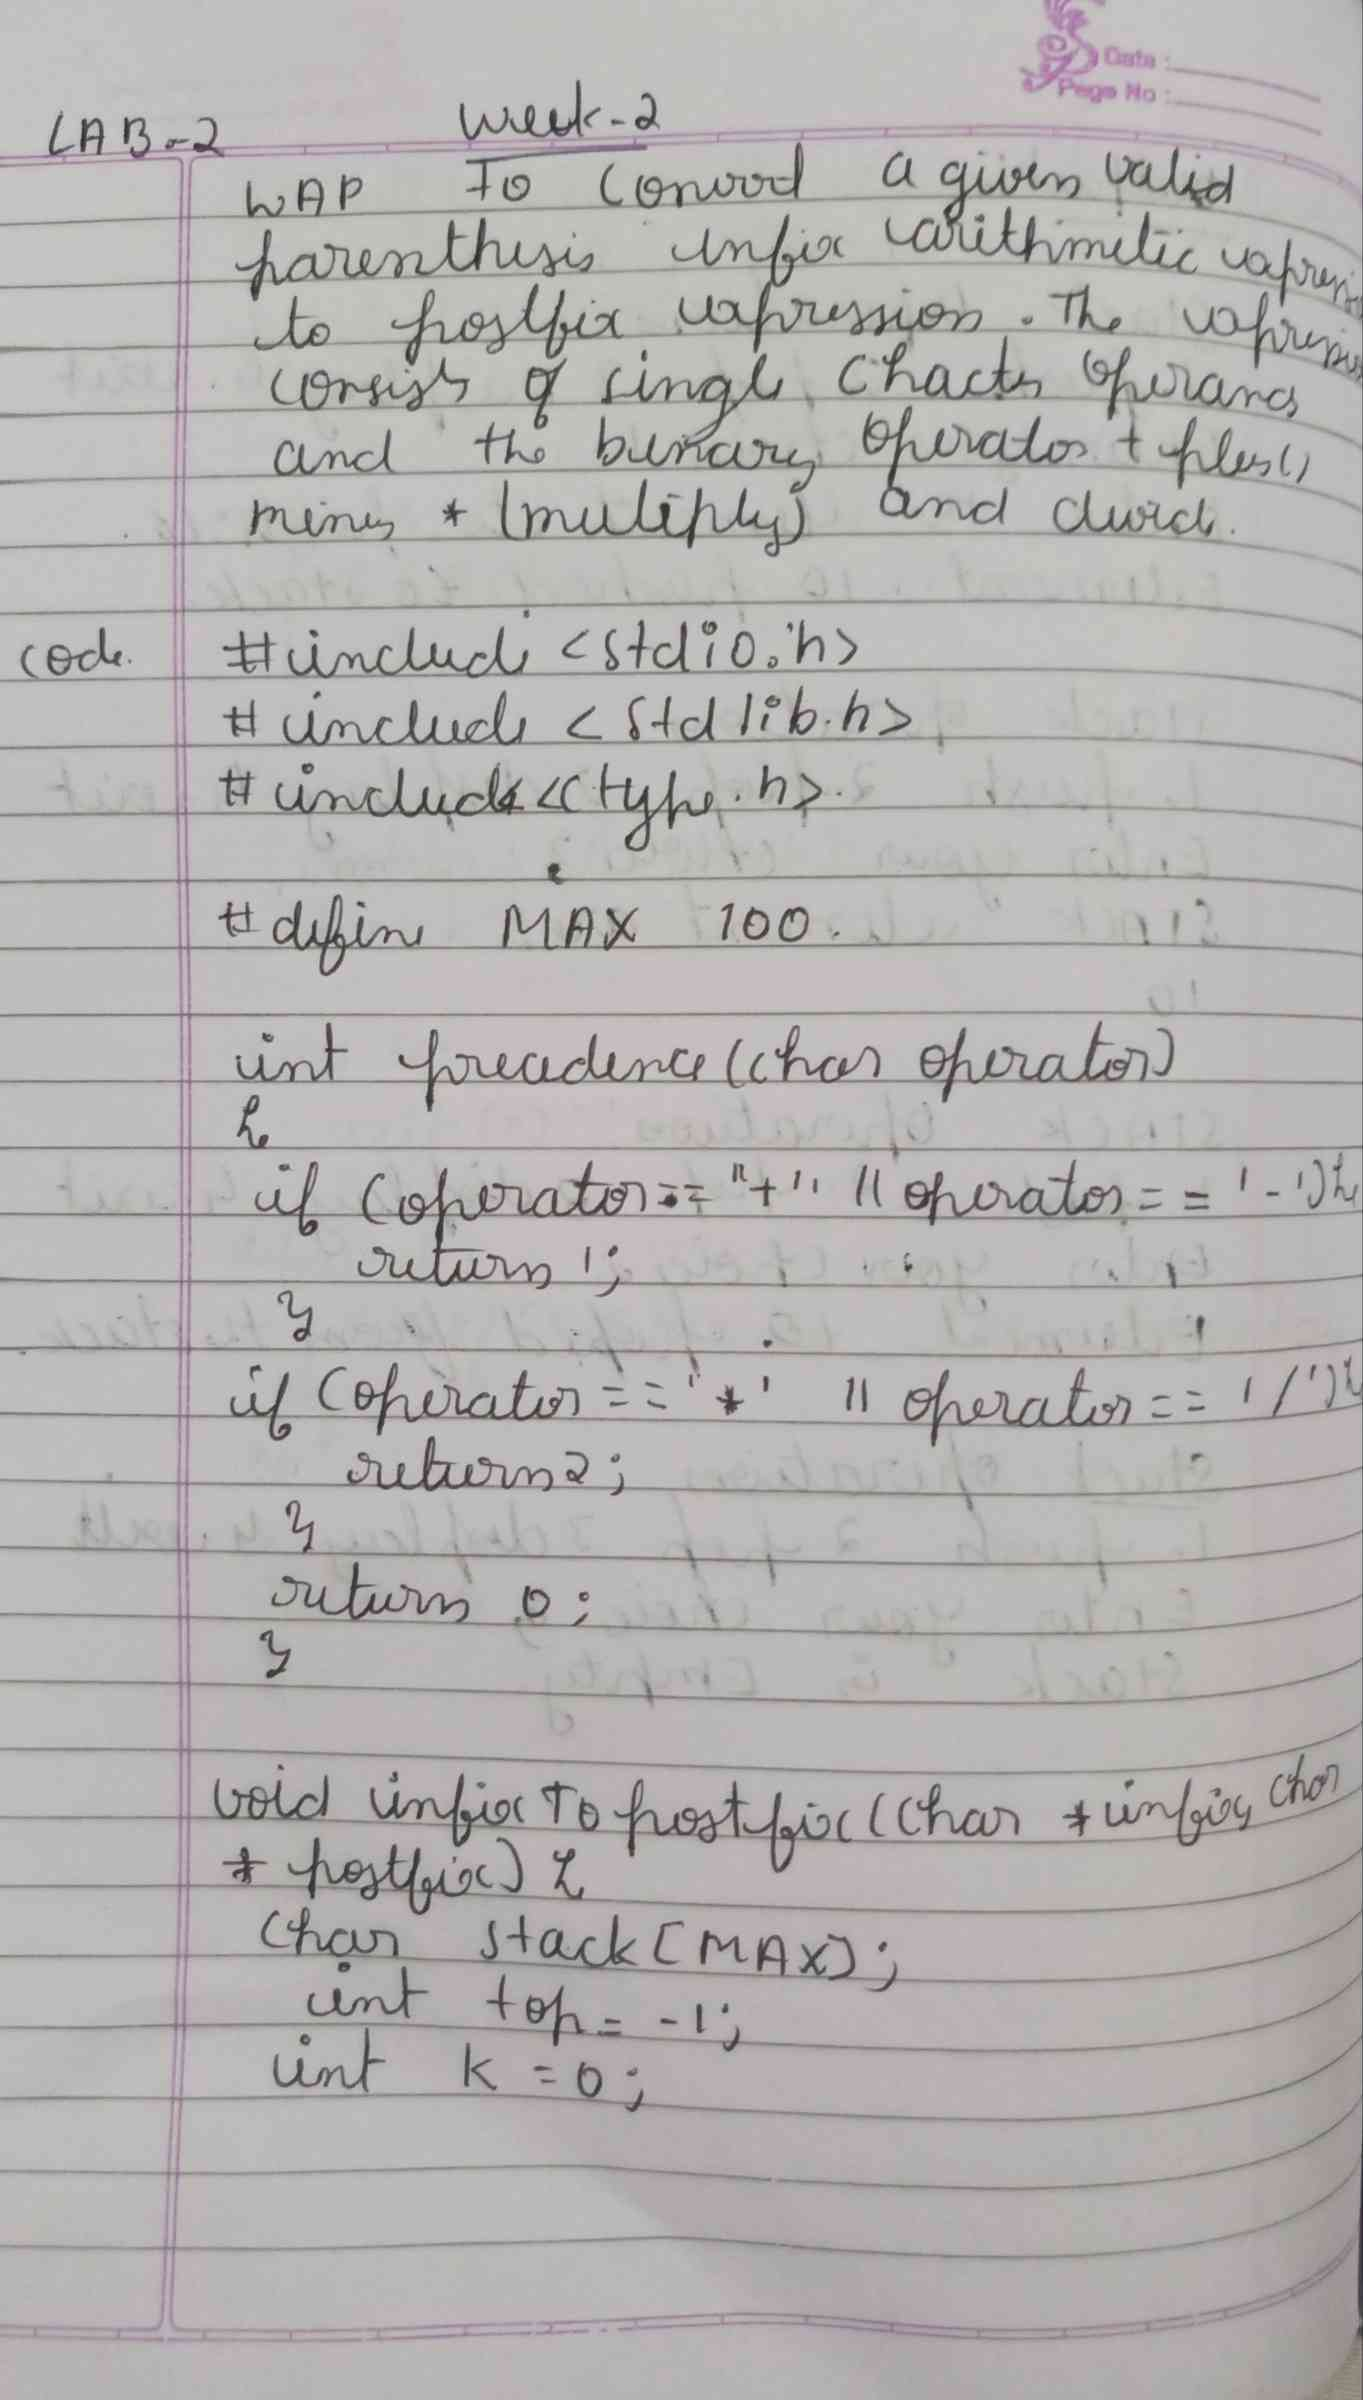 Date :
Page No :
LAB-2 Week-2
WAP To Convod a given valid
parenthesis infix arithmetic expressi
to postfix expression. The expression
consists of single Chacts operand
and the binary operator + plus()
minus * (multiply) and divid.
code. #include <stdio.h>
#include <stdlib.h>
#include <ctype.h>.
#define MAX 100.
int precedence(char operator)
{
if (operator== "+" || operator== '-'){
return 1;
}
if (operator== '*' || operator== '/'){
return 2;
}
return 0;
}
void infixTopostfix(char *infix, char
* postfix) {
char stack[MAX];
int top= -1;
int k =0;